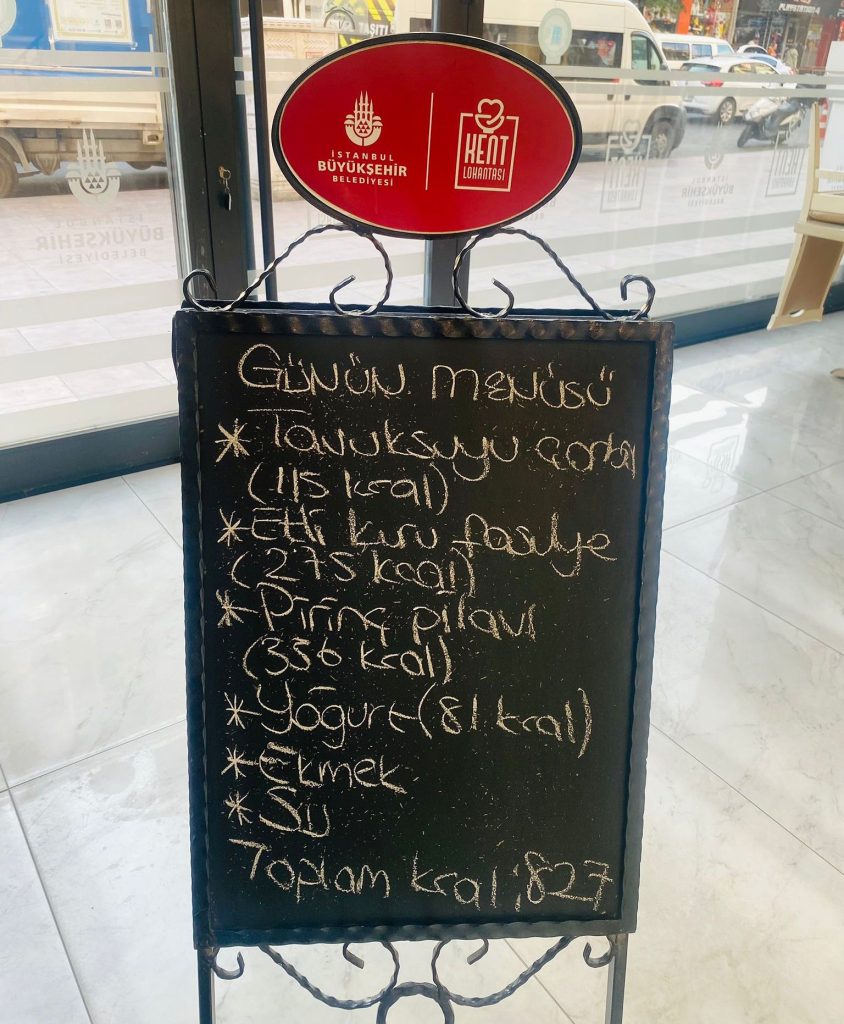 PLAYSTATION 4
TAŞITI
İSTANBUL
BÜYÜKŞEHİR
BELEDİYESİ
KENT
LOKANTASI
BÜYÜKŞEHİR
BELEDİYESİ
GÜNÜN MENÜSÜ
* Tavuksuyu çorba
(115 kcal)
* Etli kuru fasulye
(275 kcal)
* Pirinç pilavı
(356 kcal)
* Yoğurt (81 kcal)
* Ekmek
* Su
Toplam kcal : 827